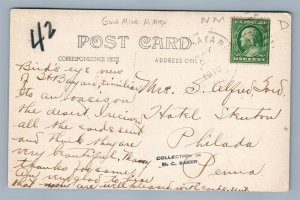 Gold Mine N. Mex
42
NM
D
POST CARD
CORRESPONDENCE HERE
ADDRESS ONLY
1910
ONE CENT
Bird's eye view
of Ft Bayard, similar
to an oasis on
the desert. I receive
all the cards sent
and think they are
very beautiful. Many
thanks for some.
Am very glad to hear
that you are well pleased with cards sent
Mrs. S. Alfred
Hotel Stenton
Philada
Penna.
COLLECTION OF
H. C. BAKER